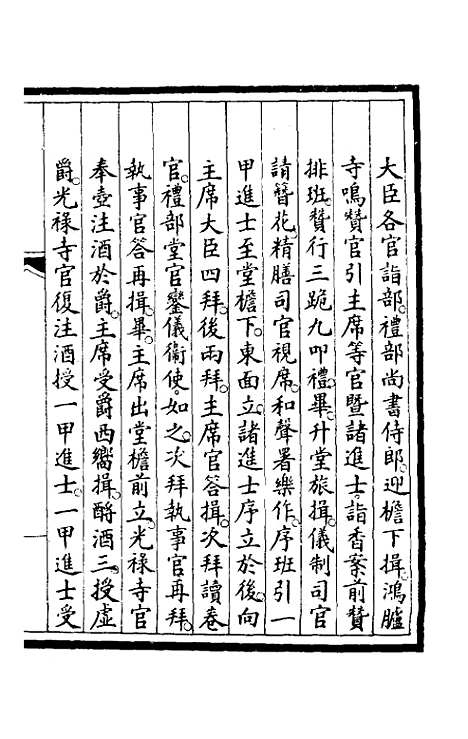 大臣各官詣部。禮部尚書侍郎。迎檐下揖。鴻臚
寺鳴贊官引主席等官暨諸進士。詣香案前贊
排班。贊行三跪九叩禮。畢。升堂旅揖。儀制司官
請簪花。精膳司官視席。和聲署樂作。序班引一
甲進士至堂檐下。東面立。諸進士序立於後。向
主席大臣四拜。後兩拜。主席官答揖。次拜讀卷
官。禮部堂官鑾儀衞使。如之。次拜執事官再拜。
執事官答再揖。畢。主席出堂檐前立。光祿寺官
奉壺注酒於爵。主席受爵西嚮揖。酹酒三。授虛
爵。光祿寺官復注酒授一甲進士。一甲進士受